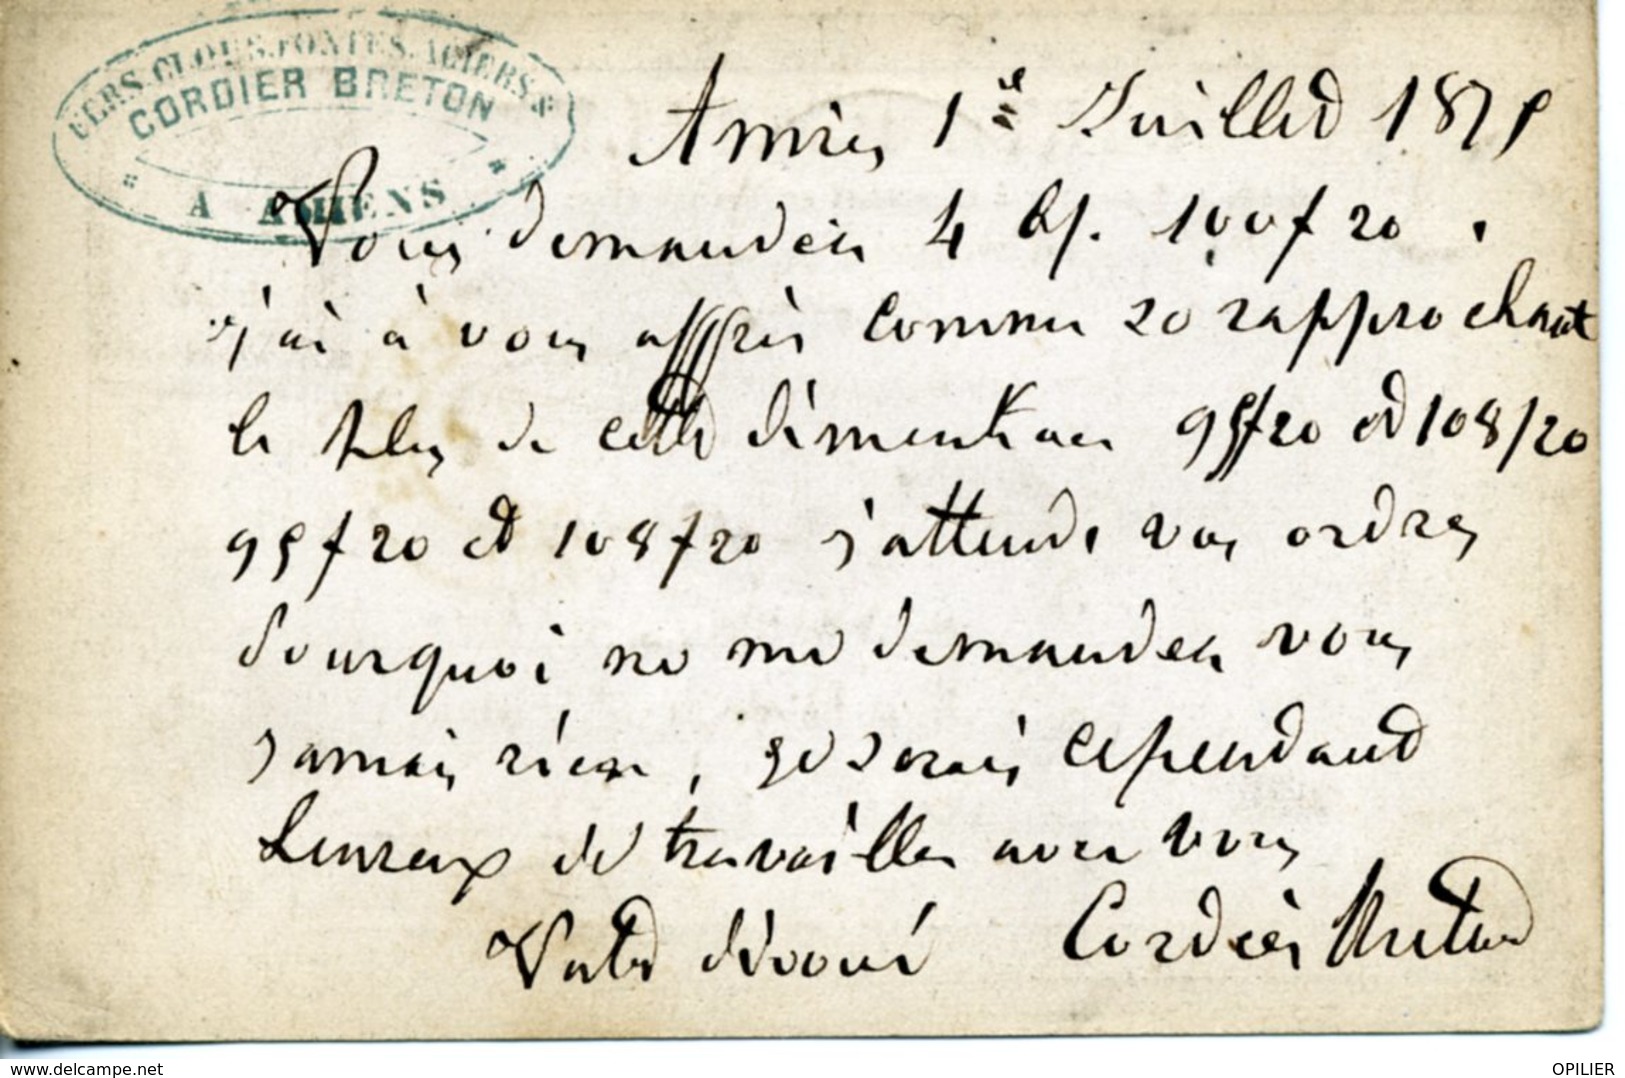 FERS. CLOUS. FONTES. ACIERS. &
CORDIER BRETON
A AMIENS
Amiens 1er Juillet 1875
Vous demandez 4 Bf. 100 f 20.
j'ai à vous offrir comme 20 rapprochant
le plus de cette dimention 95 f 20 et 108/20
95 f 20 et 108 f 20 j'attends vos ordres
Pourquoi ne me demandez vous
jamais rien, je serais cependand
heureux de travailler avec vous
Votre dévoué Cordier Breton
www.delcampe.net
OPILIER